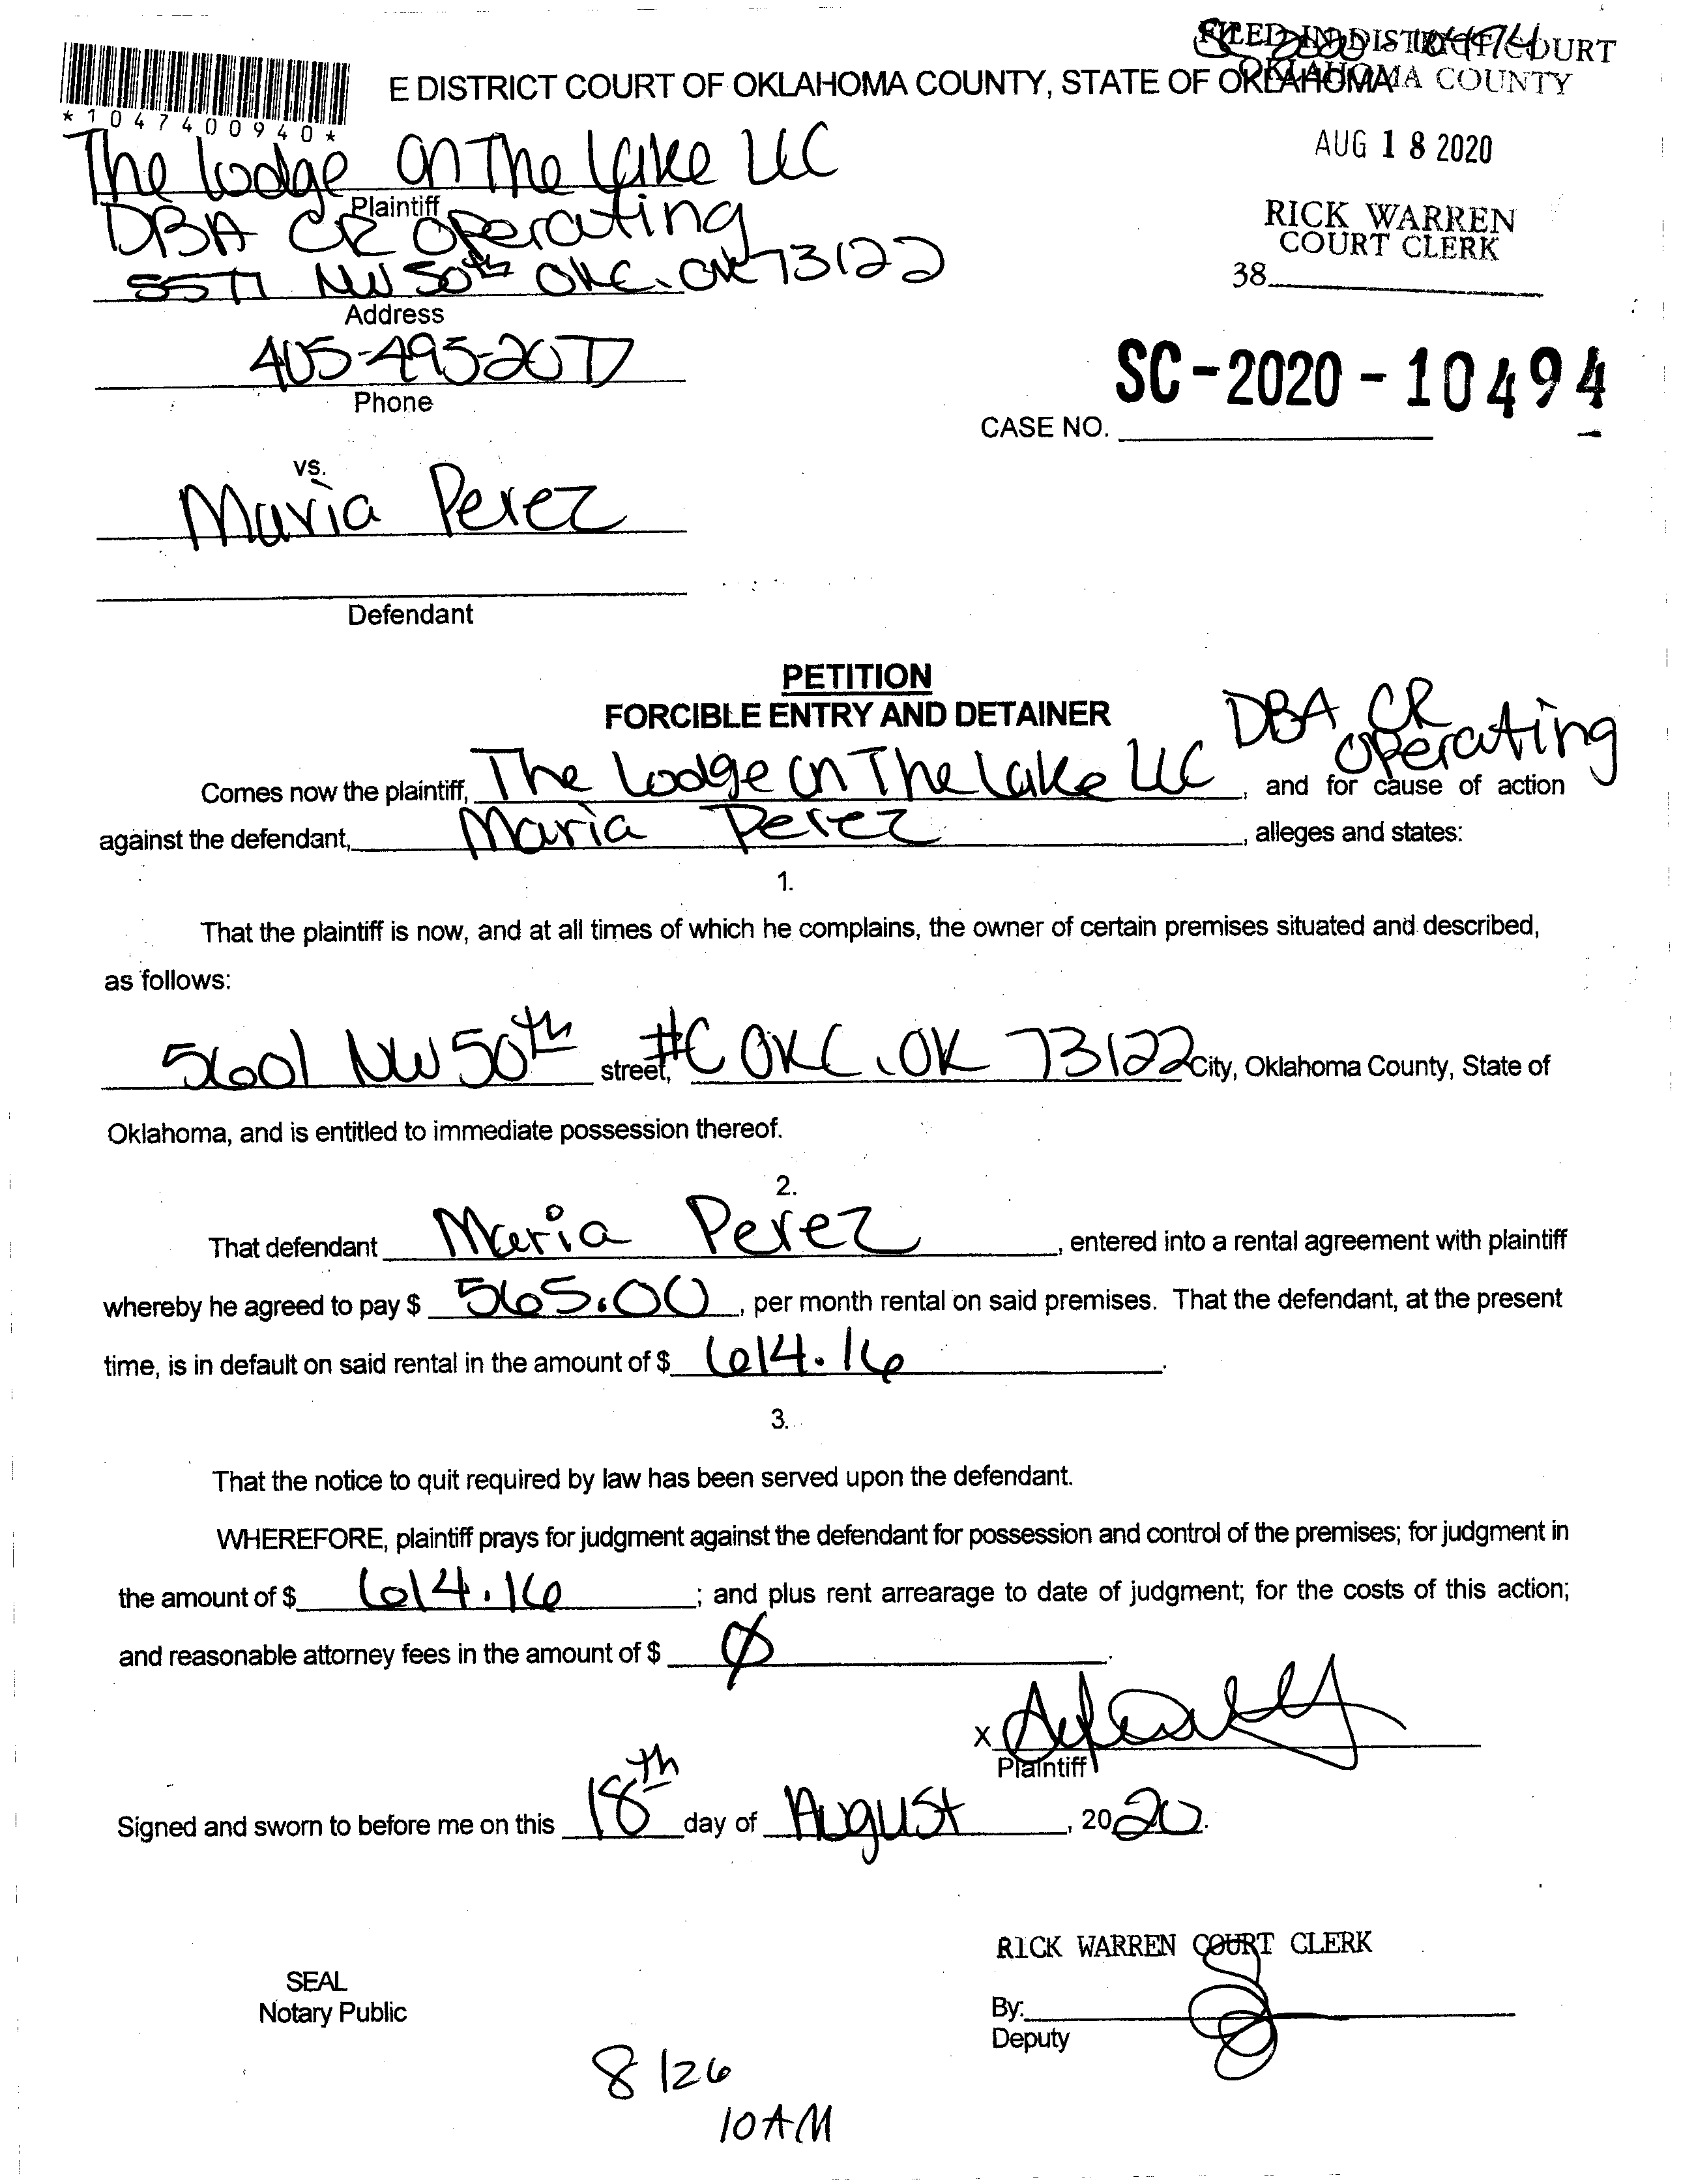 FILED IN DISTRICT COURT
OKLAHOMA COUNTY
E DISTRICT COURT OF OKLAHOMA COUNTY, STATE OF OKLAHOMA
*1047400940*
AUG 18 2020
RICK WARREN
COURT CLERK
38
The Lodge on The Lake LLC
Plaintiff
DBA CR Operating
5577 NW 50th OKC. OK 73122
Address
405-495-2077
Phone
SC-2020-10494
CASE NO.
vs.
Maria Perez
Defendant
PETITION
FORCIBLE ENTRY AND DETAINER
DBA CR
Operating
Comes now the plaintiff, The Lodge on The Lake LLC, and for cause of action
against the defendant, Maria Perez, alleges and states:
1.
That the plaintiff is now, and at all times of which he complains, the owner of certain premises situated and described,
as follows:
5601 NW 50th street, #C OKC, OK 73122 City, Oklahoma County, State of
Oklahoma, and is entitled to immediate possession thereof.
2.
That defendant Maria Perez, entered into a rental agreement with plaintiff
whereby he agreed to pay $ 565.00, per month rental on said premises. That the defendant, at the present
time, is in default on said rental in the amount of $ 614.16.
3.
That the notice to quit required by law has been served upon the defendant.
WHEREFORE, plaintiff prays for judgment against the defendant for possession and control of the premises; for judgment in
the amount of $ 614.16; and plus rent arrearage to date of judgment; for the costs of this action;
and reasonable attorney fees in the amount of $ Ø.
X
Plaintiff
Signed and sworn to before me on this 18th day of August, 2020.
RICK WARREN COURT CLERK
SEAL
Notary Public
By:
Deputy
8/26
10AM